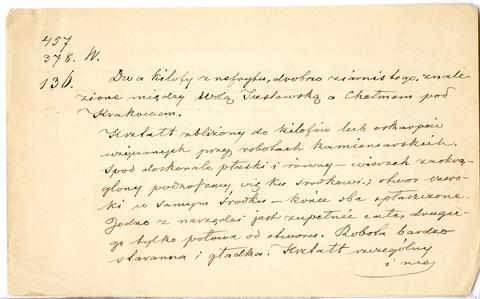 457
378. W.
136. Dwa kilofy z nefrytu, drobno ziarnistego, znale-
zione między Wolą Justowską a Chełmem pod
Krakowem.
Kształt zbliżony do kilofów lub oskardów
używanych przy robotach kamieniarskich.
Spód doskonale płaski i równy – wierzch zaokrą-
glony podnoszący się ku środkowi; otwór szero-
ki w samym środku – końce oba spłaszczone.
Jedno z narzędzi jest zupełnie całe, drugie-
go tylko połowa od otworu. Robota bardzo
staranna i gładka. Kształt szczególny
i nie